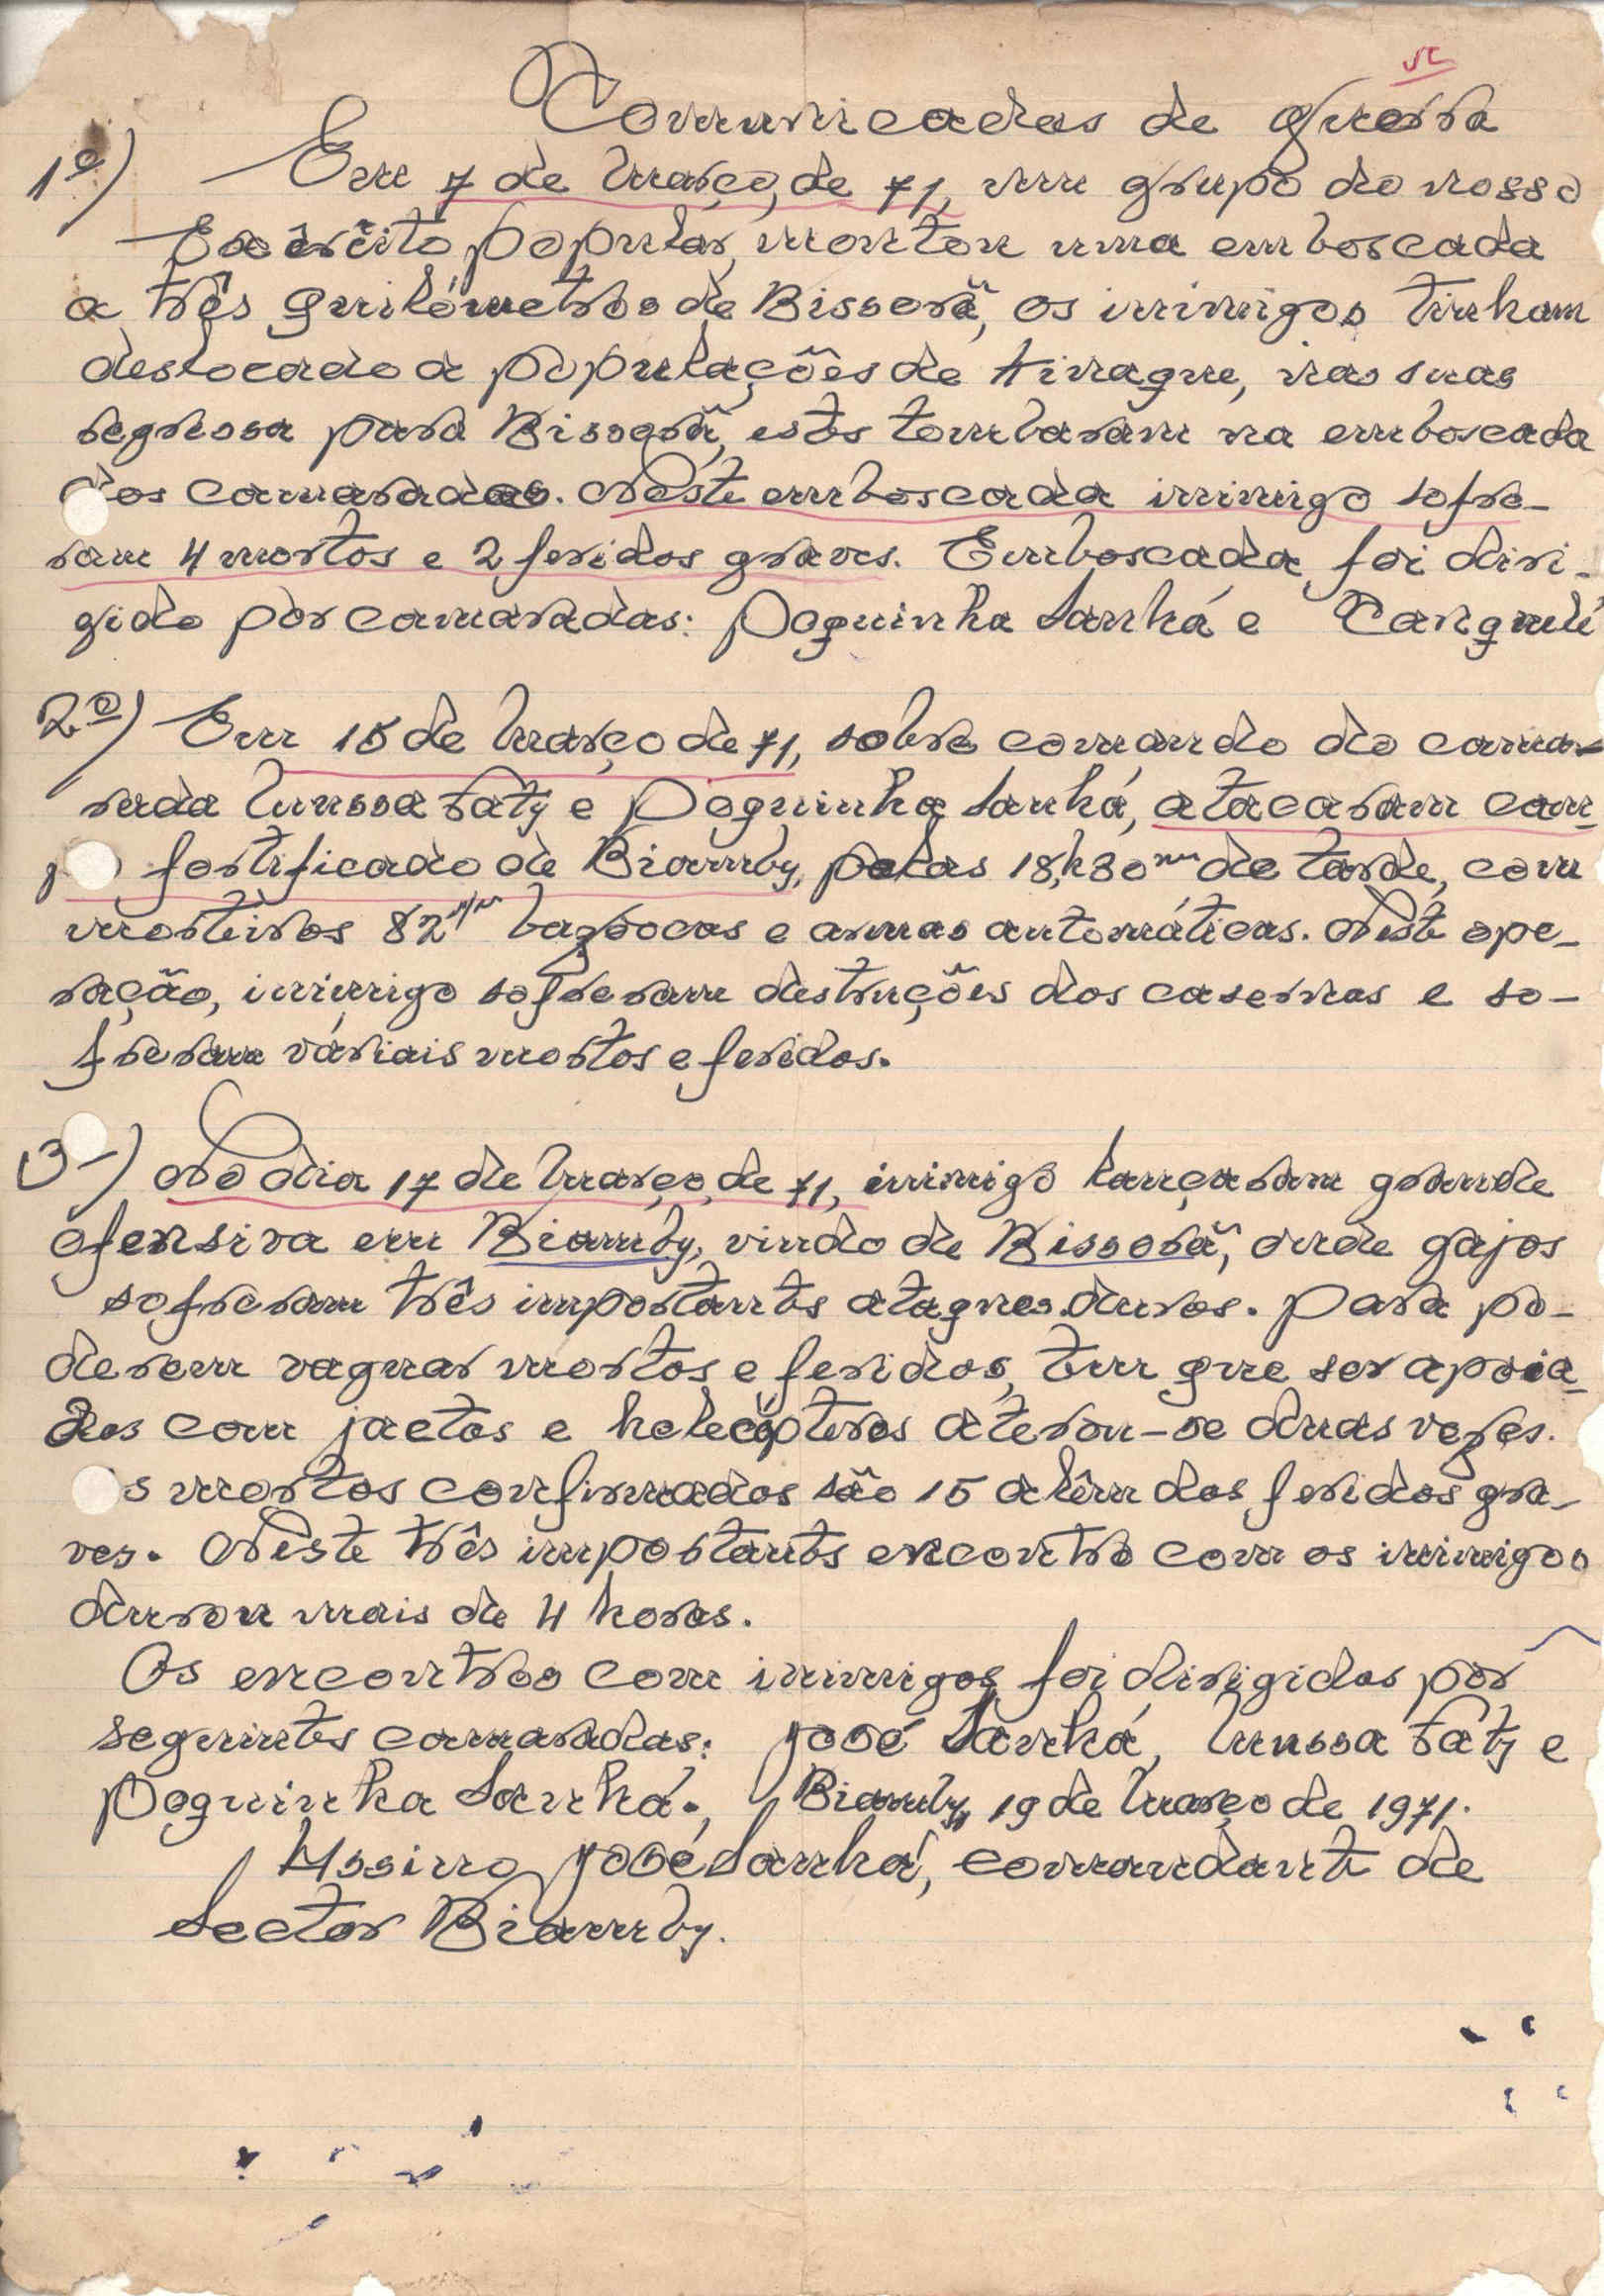 Comunicados de guerra
1º) Em 7 de Março, de 71, um grupo do nosso
Exêrcito popular, montou uma emboscada
a três quilómetros de Bissorã, os inimigos tinham
deslocado a populações de tinague, nas suas
regressa para Bissorã, estes tombaram na emboscada
dos camaradas. Neste emboscada inimigo sofre-
ram 4 mortos e 2 feridos graves. Emboscada, foi diri-
gido por camaradas: Poquinha Sanhá e Canqueli
2º) Em 15 de Março de 71, sobre comando do cama-
rada Mussa Faty e Poquinha Sanhá, atacaram cam-
po fortificado de Biamby, pelas 18,h30m de tarde, com
morteiros 82m/m bazoocas e armas automáticas. Neste ope-
ração, inimigo sofreram destruções dos casernas e so-
freram váriais mortos e feridos.
3-) No dia 17 de Março, de 71, inimigo lançaram grande
ofensiva em Biamby, vindo de Bissorã, onde gajos
sofreram três importants ataques duros. Para po-
derem vaguar mortos e feridos, tem que ser apoia-
dos com jactos e helecópteros aterou-se duas vezes.
Os mortos confirmados são 15 alêm dos feridos gra-
ves. Neste três importants encontro com os inimigos
durou mais de 4 horas.
Os encontros com inimigos foi dirigidos por
seguintes camaradas: José Sanhá, Mussa Faty e
Poquinha Sanhá. Biamby, 19 de Março de 1971.
Assino José Sanhá, comandante de
Sector Biamby.